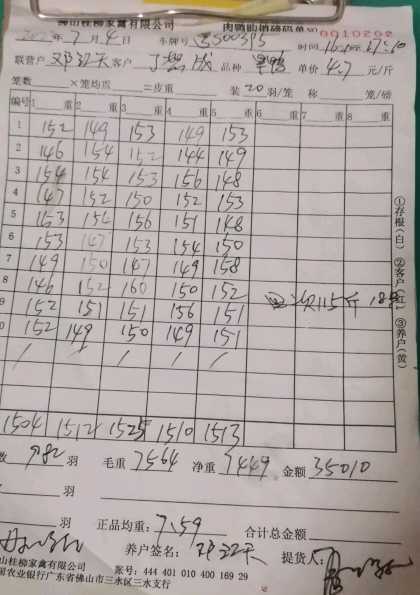 佛山桂柳家禽有限公司 肉鸭购销磅码单 NO 0010202
2022年7月4日 车牌号 S003P5 时间
联营户 邓卫天 客户 品种 单价 4.7 元/斤
笼数 ×笼均重 =皮重 装 20 羽/笼 称 笼/磅
编号 1 重 2 重 3 重 4 重 5 重 6 重 7 重 8 重
1 152 149 153 149 153
2 146 154 152 144 149
3 154 154 153 156 148
4 147 152 150 152 153
5 153 154 156 151 148
6 153 147 153 154 150
7 149 150 147 149 158
8 146 152 160 150 152
9 152 151 151 156 151 欠115斤
0 152 149 150 149 151
/ / / / /
1504 1512 1525 1510 1513
数 982 羽 毛重 7564 净重 7449 金额 35010
羽
羽 正品均重: 7.59 合计总金额
养户签名: 邓卫天 提货人:
山桂柳家禽有限公司 账号: 444 401 010 400 169 29
国农业银行广东省佛山市三水区三水支行
①存根(白) ②客户(红) ③养户(黄)